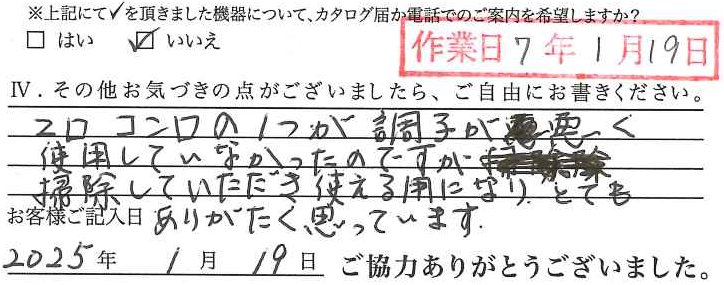 ※上記にて✓を頂きました機器について、カタログ届か電話でのご案内を希望しますか?
□ はい ☑ いいえ
作業日 7年 1月19日
Ⅳ．その他お気づきの点がございましたら、ご自由にお書きください。
2口コンロの1つが調子が悪く
使用していなかったのですが
掃除していただき使える用になり、とても
お客様ご記入日 ありがたく思っています.
2025年 1月 19日 ご協力ありがとうございました。